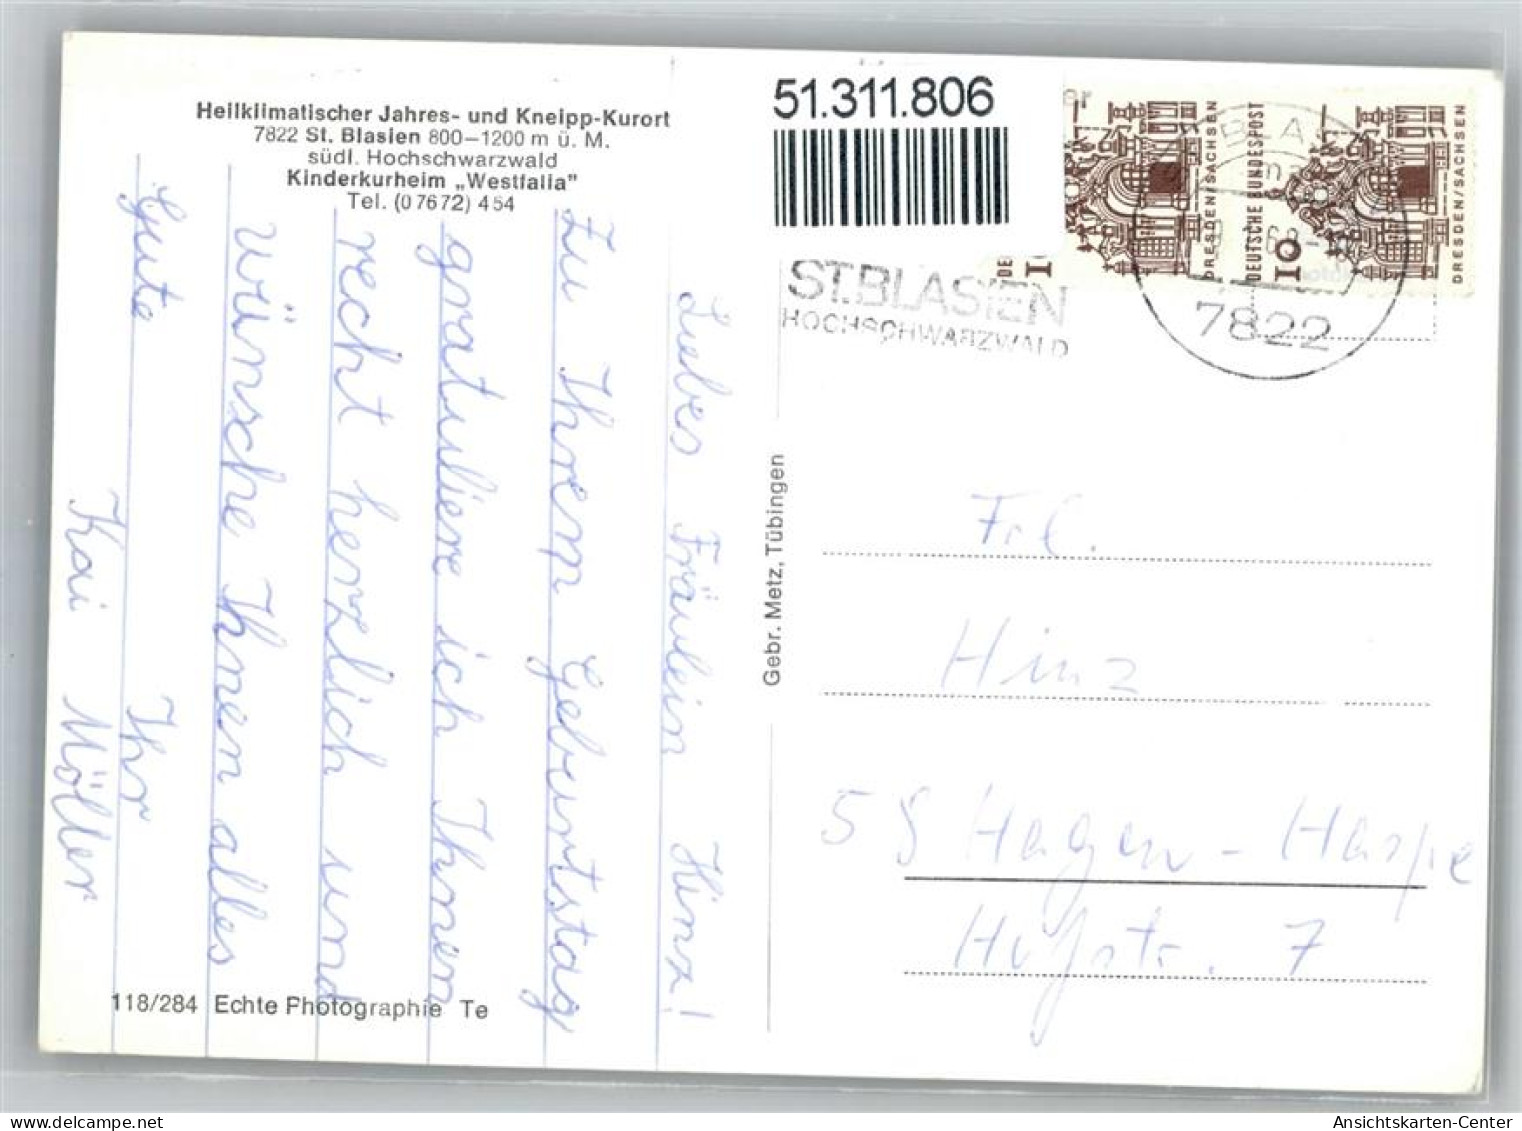 Heilklimatischer Jahres- und Kneipp-Kurort
7822 St. Blasien 800–1200 m ü. M.
südl. Hochschwarzwald
Kinderkurheim „Westfalia"
Tel. (0 76 72) 4 54
Liebes Fräulein Hinz!
Zu Ihrem Geburtstag
gratuliere ich Ihnen
recht herzlich und
wünsche Ihnen alles
Gute
Ihr
Kai Möller
118/284 Echte Photographie Te
Gebr. Metz, Tübingen
51.311.806
ST.BLASIEN
HOCHSCHWARZWALD
7822
DRESDEN/SACHSEN
DEUTSCHE BUNDESPOST
10
DRESDEN/SACHSEN
Frl.
Hinz
58 Hagen - Haspe
7
Ansichtskarten-Center